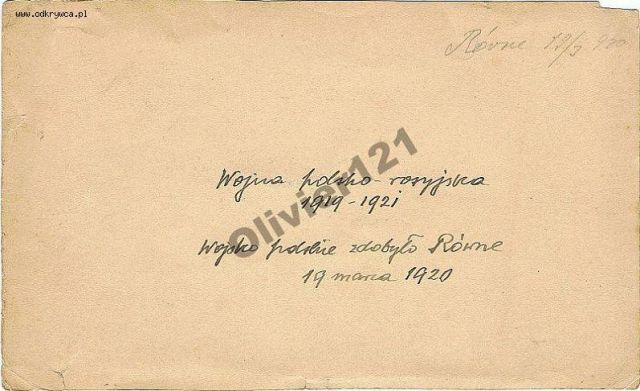 www.odkrywca.pl
Równe 19/3 920
Wojna polsko-rosyjska
1919-1921
Olivier121
Wojsko polskie zdobyło Równe
19 marca 1920